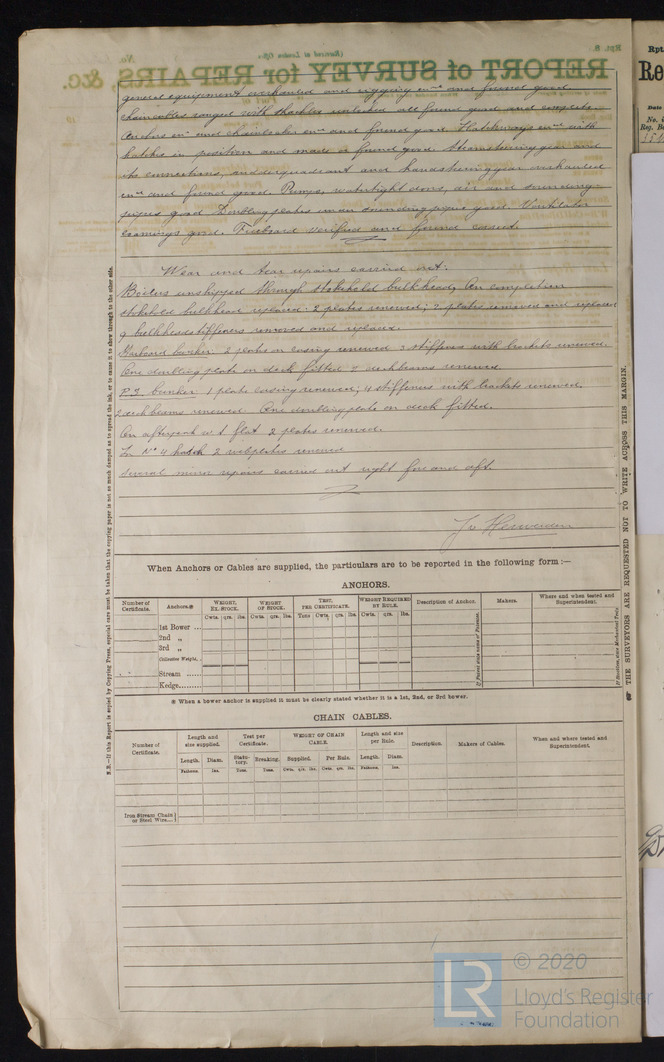 general equipment overhauled and rigging exd and found good
chain cables ranged with shackles unlocked all found good and complete
Anchors exd and chainlocker exd and found good. Hatchways exd with
hatches in position and made or found good. Steamsteering gear and
its connections, rudderquadrant and handsteering gear overhauled
exd and found good. Pumps, watertight doors, air and sounding
pipes good. Doubling plates under sounding pipes good. Ventilator
coamings good. Freeboard verified and found correct.
Wear and tear repairs carried out:
Boilers unshipped through stokehold bulkhead, On completion
stokehold bulkhead replaced: 2 plates renewed; 2 plates removed and replaced
9 bulkhead stiffeners removed and replaced.
Starboard bunker: 2 plates on casing renewed 3 stiffeners with brackets renewed.
One doubling plate on deck fitted 2 deckbeams renewed
P.S. bunker 1 plate casing renewed; 4 stiffeners with brackets renewed.
2 deckbeams renewed. One doubling plate on deck fitted.
On afterpeak w.t. flat 2 plates renewed.
In No 4 hatch 2 webplates renewed
Several minor repairs carried out right fore and aft.
When Anchors or Cables are supplied, the particulars are to be reported in the following form:—
ANCHORS.
Number of Certificate. Anchors.※ WEIGHT, EX-STOCK. WEIGHT OF STOCK. TEST, PER CERTIFICATE. WEIGHT REQUIRED BY RULE. Description of Anchor. Makers. Where and when tested and Superintendent.
Cwts. qrs. lbs. Cwts. qrs. lbs. Tons Cwts. qrs. lbs. Cwts. qrs. lbs.
1st Bower ...
2nd „
3rd „
Collective Weight.
Stream
Kedge
※ When a bower anchor is supplied it must be clearly stated whether it is a 1st, 2nd, or 3rd bower.
CHAIN CABLES.
Number of Certificate. Length and size supplied. Test per Certificate. WEIGHT OF CHAIN CABLE. Length and size per Rule. Description. Makers of Cables. When and where tested and Superintendent.
Length. Diam. Statutory. Breaking. Supplied. Per Rule. Length. Diam.
Fathoms. Ins. Tons. Tons. Cwts. qrs. lbs. Cwts. qrs. lbs. Fathoms. Ins.
Iron Stream Chain or Steel Wire...
N.B.—If this Report is copied by Copying Press, especial care must be taken that the copying paper is not so much damped as to spread the ink, or to cause it to show through to the other side.
☛ THE SURVEYORS ARE REQUESTED NOT TO WRITE ACROSS THIS MARGIN.
REPORT of SURVEY for REPAIRS, &c.
Rpt. 8.
No.
(Received at London Office
Rpt.
Re
Date
No. i
Reg. B
LR
© 2020
Lloyd's Register
Foundation